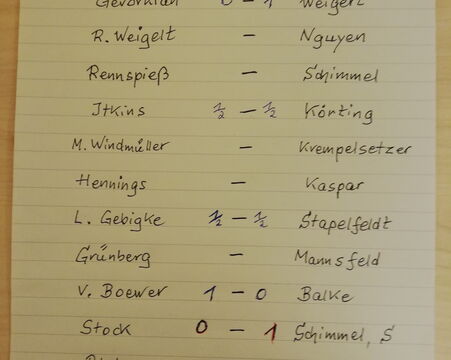 Gevorkian 0 - 1 Weigelt
R. Weigelt - Nguyen
Rennspieß - Schimmel
Itkins ½ - ½ Körting
M. Windmüller - Krempelsetzer
Hennings - Kaspar
L. Gebigke ½ - ½ Stapelfeldt
Grünberg - Mannsfeld
V. Boewer 1 - 0 Balke
Stock 0 - 1 Schimmel, S